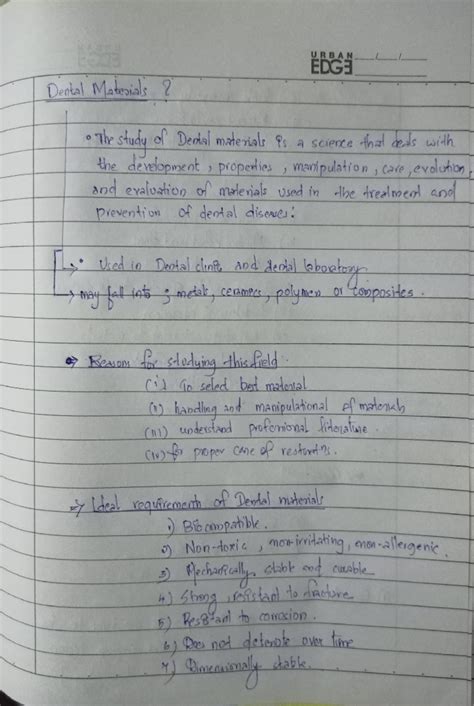 URBAN
EDGE
Dental Materials ?
• The study of Dental materials is a science that deals with
the development, properties, manipulation, care, evolution
and evaluation of materials used in the treatment and
prevention of dental diseases:
• Used in Dental clinic and dental laboratory
may fall into ; metals, ceramics, polymers or composites.
Reasons for studying this field.
(i) To select best material
(ii) handling and manipulational of materials
(iii) understand professional literature.
(iv) for proper care of restoratns.
Ideal requirements of Dental materials
1) Biocompatible.
2) Non-toxic, non-irritating, non-allergenic.
3) Mechanically stable and
4) Strong, resistant to fracture
5) Resistant to corrosion.
6) Does not deteriote over time
7) Dimensionally stable.